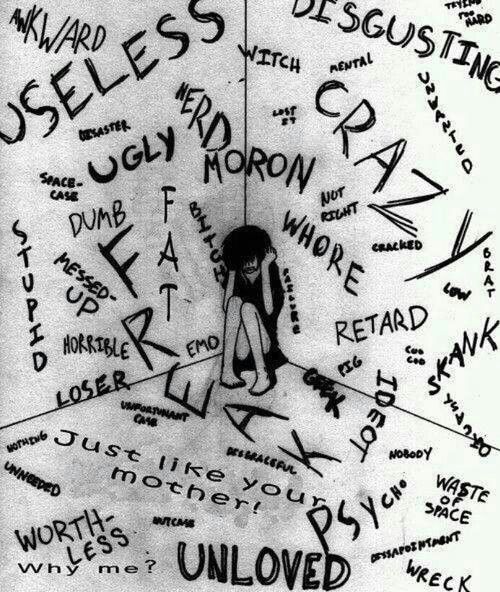 AWKWARD
DISGUSTING
TRYING
TOO
HARD
USELESS
WITCH
MENTAL
UNWANTED
NERD
LOST
IT
CRAZY
DISASTER
UGLY
MORON
SPACE-
CASE
NOT
RIGHT
FAT
DUMB
BITCH
WHORE
CRACKED
BRAT
STUPID
MESSED-
UP
LOW
FREAK
RETARD
HORRIBLE
EMO
COO
COO
SKANK
PIG
LOSER
GEEK
IDEOT
UNFORTUNANT
CASE
NOTHING
Just like your
mother!
DISGRACEFUL
NOBODY
UNNEEDED
PSYCHO
WASTE
OF
SPACE
WORTH-
LESS
NUTCASE
DISSAPOINTMENT
Why me?
UNLOVED
WRECK